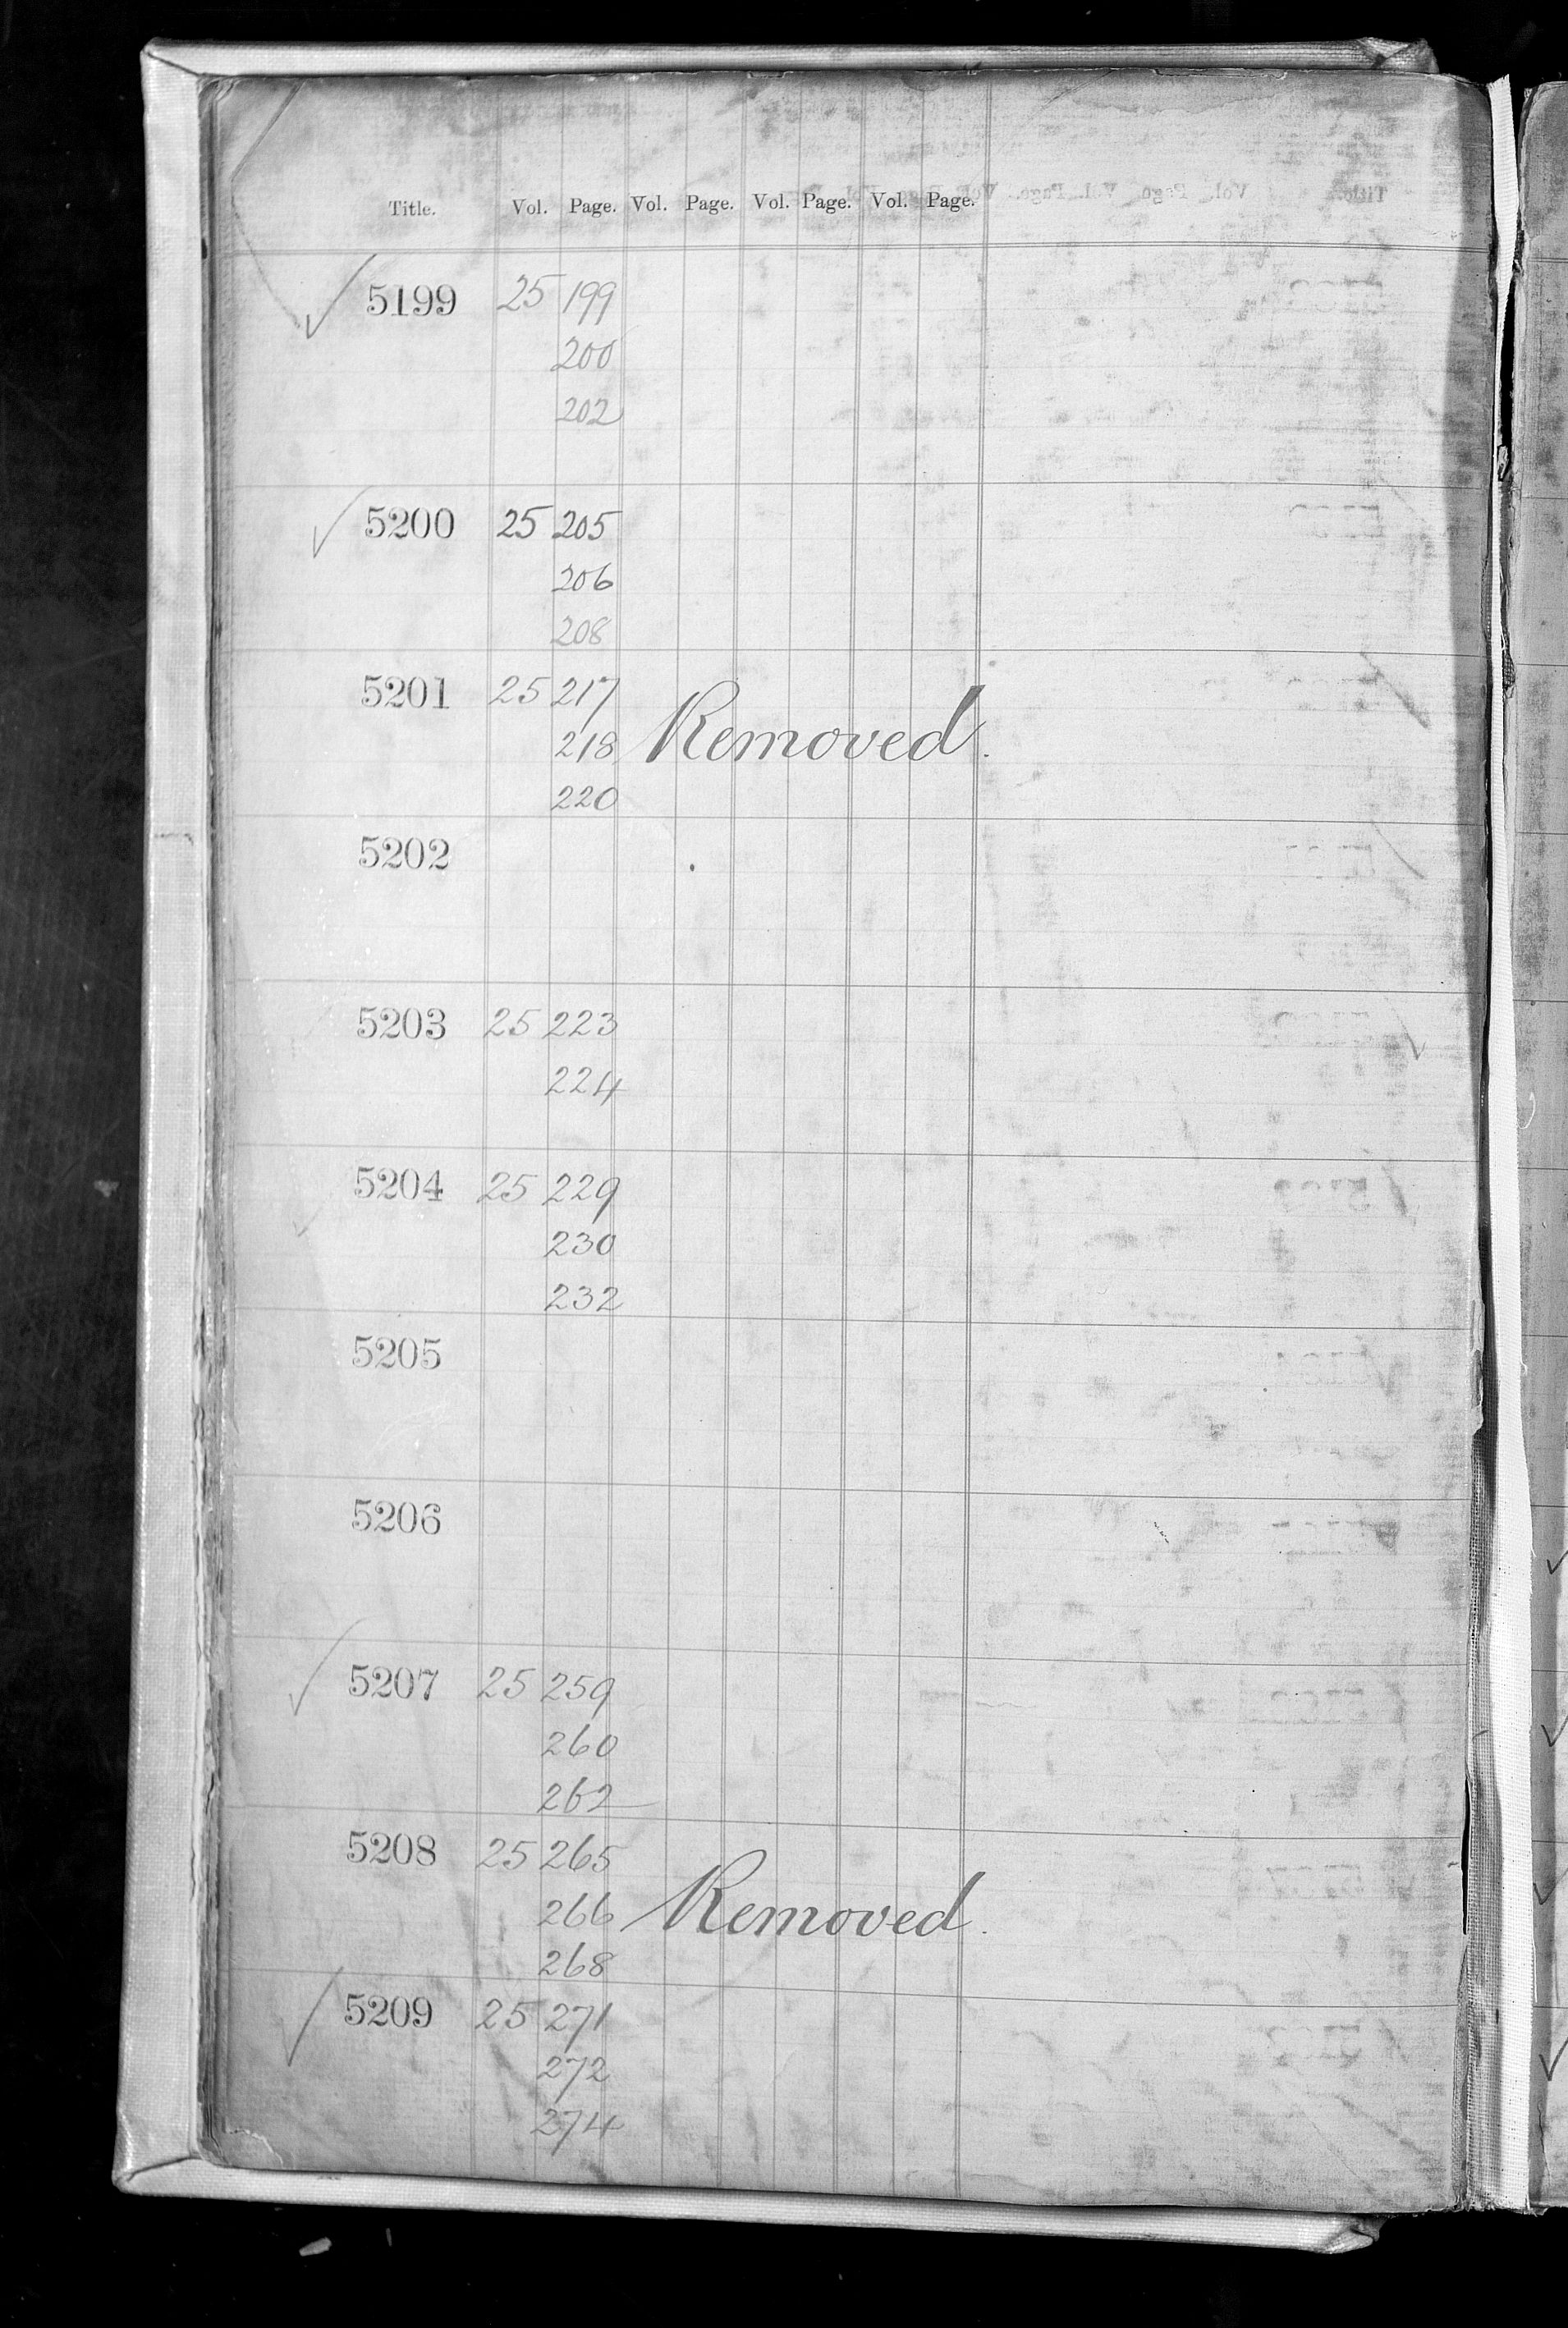 Title. Vol. Page. Vol. Page. Vol. Page. Vol. Page.
5199 25 199
200
202
5200 25 205
206
208
5201 25 217
218 Removed.
220
5202
5203 25 223
224
5204 25 229
230
232
5205
5206
5207 25 259
260
262
5208 25 265
266 Removed.
268
5209 25 271
272
274